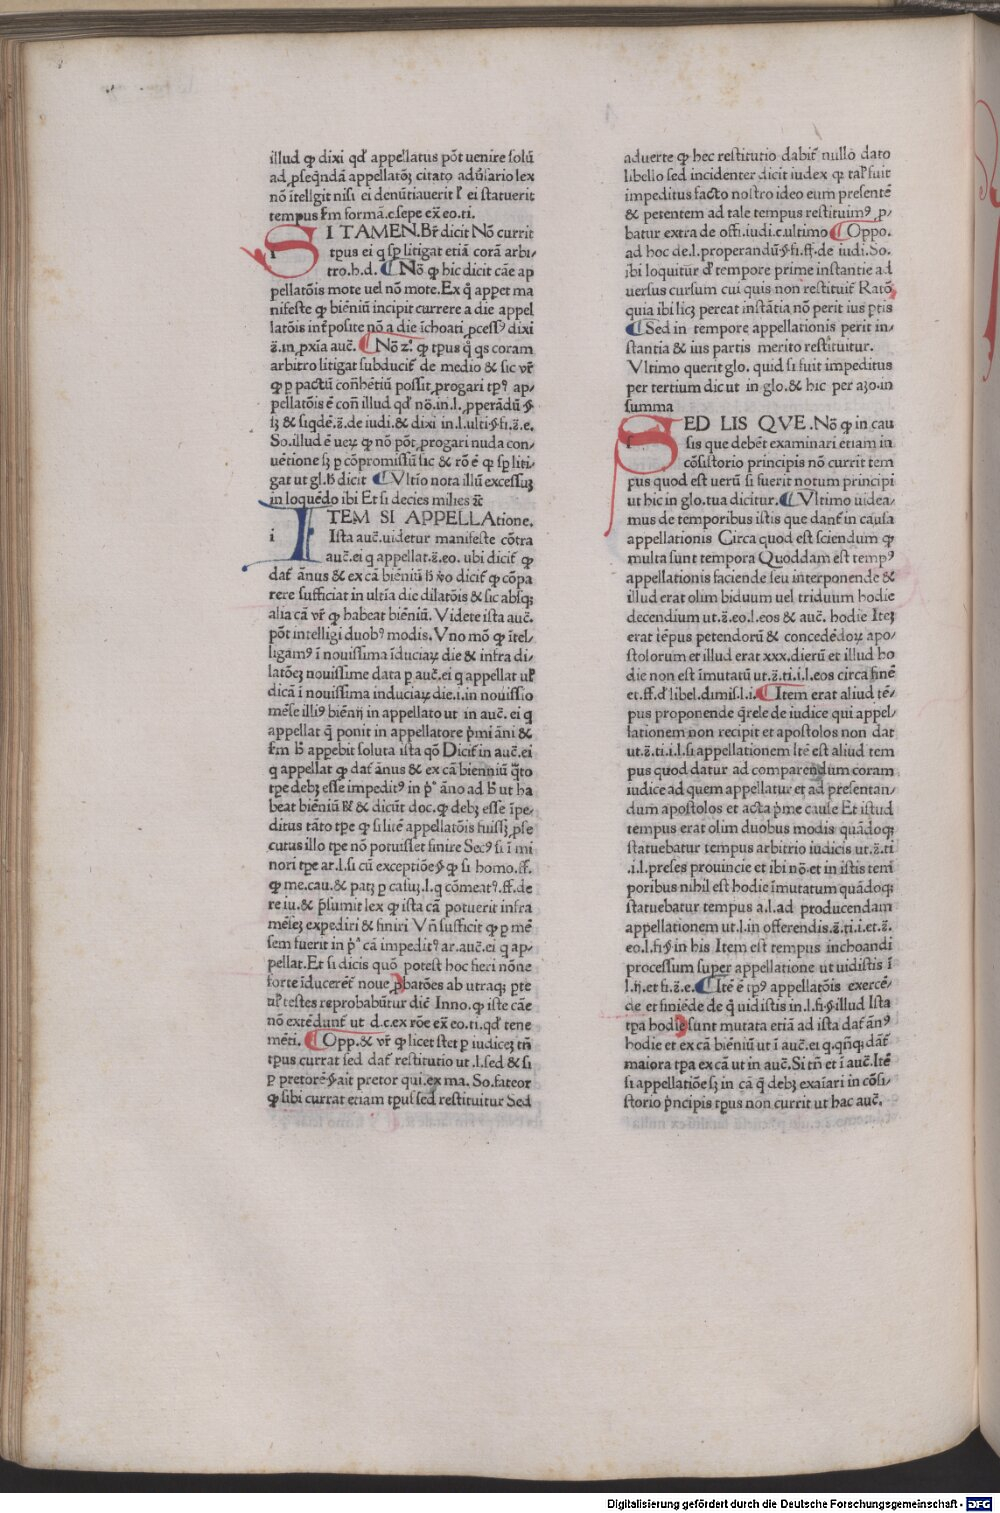 illud ꝙ dixi qd̓ appellatus põt uenire solũ
ad ꝓseq̃ndã appellatõꝫ citato aduersario lex
nõ ĩtelligit nisi ei denũtiauerit ł ei statuerit
tempus fm formã.c.sepe ex̃ eo.ti.
SI TAMEN.Br̃ dicit Nõ currit
tp̃us ei q sꝑ litigat etiã corã arbi/
tro.h.d. ¶ Nõ ꝙ hic dicit cãe ap
pellatõis mote uel nõ mote.Ex q̃ appet ma
nifeste ꝙ biẽniũ incipit currere a die appel
latõis int̃posite nõ a die ĩchoati ꝓcessꝰ dixi
z̃.in.ꝓxia auc̃. ¶ Nõ z̊.ꝙ tp̃us q̃ qs coram
arbitro litigat subducit̃ de medio & sic vr̃
ꝙ ꝑ pactũ coñhẽtiũ possit ꝓrogari tp̃ꝰ ap/
pellatõis ẽ coñ illud qd̓ nõ.in.l.ꝓperãdũ §
sꝫ & siqdẽ.z̃.de iudi.& dixi in.l.ulti.§.fi.z̃.e.
So.illud ẽ ueꝝ ꝙ nõ põt ꝓrogari nuda con/
uẽtione sꝫ ꝑ cõpromissũ sic & rõ ẽ ꝙ sꝑ liti/
gat ut gl.h̃ dicit ¶ Vltĩo nota illũ excessuꝫ
in loquẽdo ibi Et si decies milies zc̃
ITEM SI APPELLAtione.
i Ista auc̃.uidetur manifeste cõtra
auc̃.ei q appellat.z̃.eo. ubi dicit̃ ꝙ
dat̃ ãnus & ex cã biẽniũ h̃ v̊o dicit̃ ꝙ cõpa
rere sufficiat in ultĩa die dilatõis & sic absqꝫ
alia cã vr̃ ꝙ habeat biẽniũ. Videte ista auc̃.
põt intelligi duobꝰ modis. Vno mõ ꝙ ĩtel/
ligamꝰ ĩ nouissima ĩduciaꝝ die & infra di/
latõeꝫ nouissime data ꝑ auc̃.ei q appellat uł
dicã ĩ nouissima induciaꝝ die.i.in nouissio
mẽse illiꝰ biẽnij in appellato ut in auc̃. ei q
appellat q̃ ponit in appellatore p̃mi ãni &
fm h̃ appebit soluta ista qõ Dicit̃ in auc̃.ei
q appellat ꝙ dat̃ ãnus & ex cã bienniũ q̃to
tp̃e debꝫ esse impeditꝰ in p̊ ãno ad h̃ ut ha
beat biẽniũ br̃ & dicũt doc.ꝙ debꝫ esse ĩpe/
ditus tãto tp̃e ꝙ si litẽ appellatõis fuissꝫ ꝓse
cutus illo tp̃e nõ potuisset finire Secꝰ si ĩ mi
nori tp̃e ar.l.si cũ exceptiõe § ꝙ si homo.ff.
ꝙ me.cau.& patꝫ ꝑ casuꝫ.l.q cõmeatꝰ.ff.de
re iu.& p̃sumit lex ꝙ ista cã potuerit infra
mẽseꝫ expediri & finiri Vñ sufficit ꝙ ꝑ mẽ
sem fuerit in p̊ cã impeditꝰ ar.auc̃.ei q ap/
pellat.Et si dicis quõ potest hoc fieri nõne
forte ĩducerẽt̃ noue p̱batões ab utraqꝫ pte
uł testes reprobabũtur diẽ Inno.ꝙ iste cãe
nõ extẽdunt̃ ut d.c.ex rõe ex̃ eo.ti.qd̓ tene
mẽti. ¶ Opp.& vr̃ ꝙ licet stet ꝑ iudiceꝫ tñ
tp̃us currat sed dat̃ restitutio ut.l.sed & si
ꝑ pretorẽ § ait pretor qui.ex ma. So.fateor
ꝙ sibi currat etiam tp̃us sed restituitur Sed
aduerte ꝙ hec restitutio dabit̃ nullo dato
libello sed incidenter dicit iudex qꝛ tał fuit
impeditus facto nostro ideo eum presentẽ
& petentem ad tale tempus restituimꝰ ꝓ/
batur extra de offi.iudi.c.ultimo ¶ Oppo.
ad hoc de.l.properandũ § fi.ff.de iudi.So.
ibi loquitur d̓ tempore prime instantie ad
uersus cursum cui quis non restituit̃ Ratõ
quia ibi licꝫ pereat instãtia nõ perit ius ptis
¶ Sed in tempore appellationis perit in/
stantia & ius partis merito restituitur.
Vltimo querit glo. quid si fuit impeditus
per tertium dic ut in glo.& hic per azo.in
summa
SED LIS QVE.Nõ ꝙ in cau
sis que debẽt examinari etiam in
cõsistorio principis nõ currit tem
pus quod est uerũ si fuerit notum principi
ut hic in glo.tua dicitur. ¶ Vltimo uidea/
mus de temporibus istis que dant̃ in causa
appellationis Circa quod est sciendum ꝙ
multa sunt tempora Quoddam est tempꝰ
appellationis faciende seu interponende &
illud erat olim biduum uel triduum hodie
decendium ut.z̃.eo.l.eos & auc̃. hodie Iteꝫ
erat tẽpus petendorũ & concedẽdoꝝ apo/
stolorum et illud erat xxx.dierũ et illud ho
die non est ĩmutatũ ut.z̃.ti.i.l.eos circa finẽ
et.ff.d̓ libel.dimis.l.i. ¶ Item erat aliud tẽ/
pus proponende q̃rele de iudice qui appel/
lationem non recipit et apostolos non dat
ut.z̃.ti.i.l.si appellationem Itẽ est aliud tem
pus quod datur ad comparendum coram
iudice ad quem appellatur et ad presentan/
dum apostolos et acta p̃me cause Et istud
tempus erat olim duobus modis quãdoqꝫ
statuebatur tempus arbitrio iudicis ut.z̃.ti
.i.l.preses prouincie et ibi nõ.et in istis tem
poribus nihil est hodie ĩmutatum quãdoqꝫ
statuebatur tempus a.l.ad producendam
appellationem ut.l.in offerendis.z̃.ti.i.et.z̃.
eo.l.fi § in his Item est tempus inchoandi
processum super appellatione ut uidistis ĩ
l.ij.et fi.z̃.e. ¶ Itẽ ẽ tp̃ꝰ appellatõis exercẽ/
de et finiẽde de q̃ uidistis in.l.fi § illud Ista
tp̃a hodie sunt mutata etiã ad ista dat̃ ãnꝰ
hodie et ex cã biẽniũ ut ĩ auc̃.ei q.qñqꝫ dãt̃
maiora tp̃a ex cã ut in auc̃.Si tñ et ĩ auc̃.Itẽ
si appellatiõe sꝫ in cã q̃ debꝫ exaĩari in cõsi/
storio p̃ncipis tp̃us non currit ut hac auc̃.
Digitalisierung gefördert durch die Deutsche Forschungsgemeinschaft - DFG